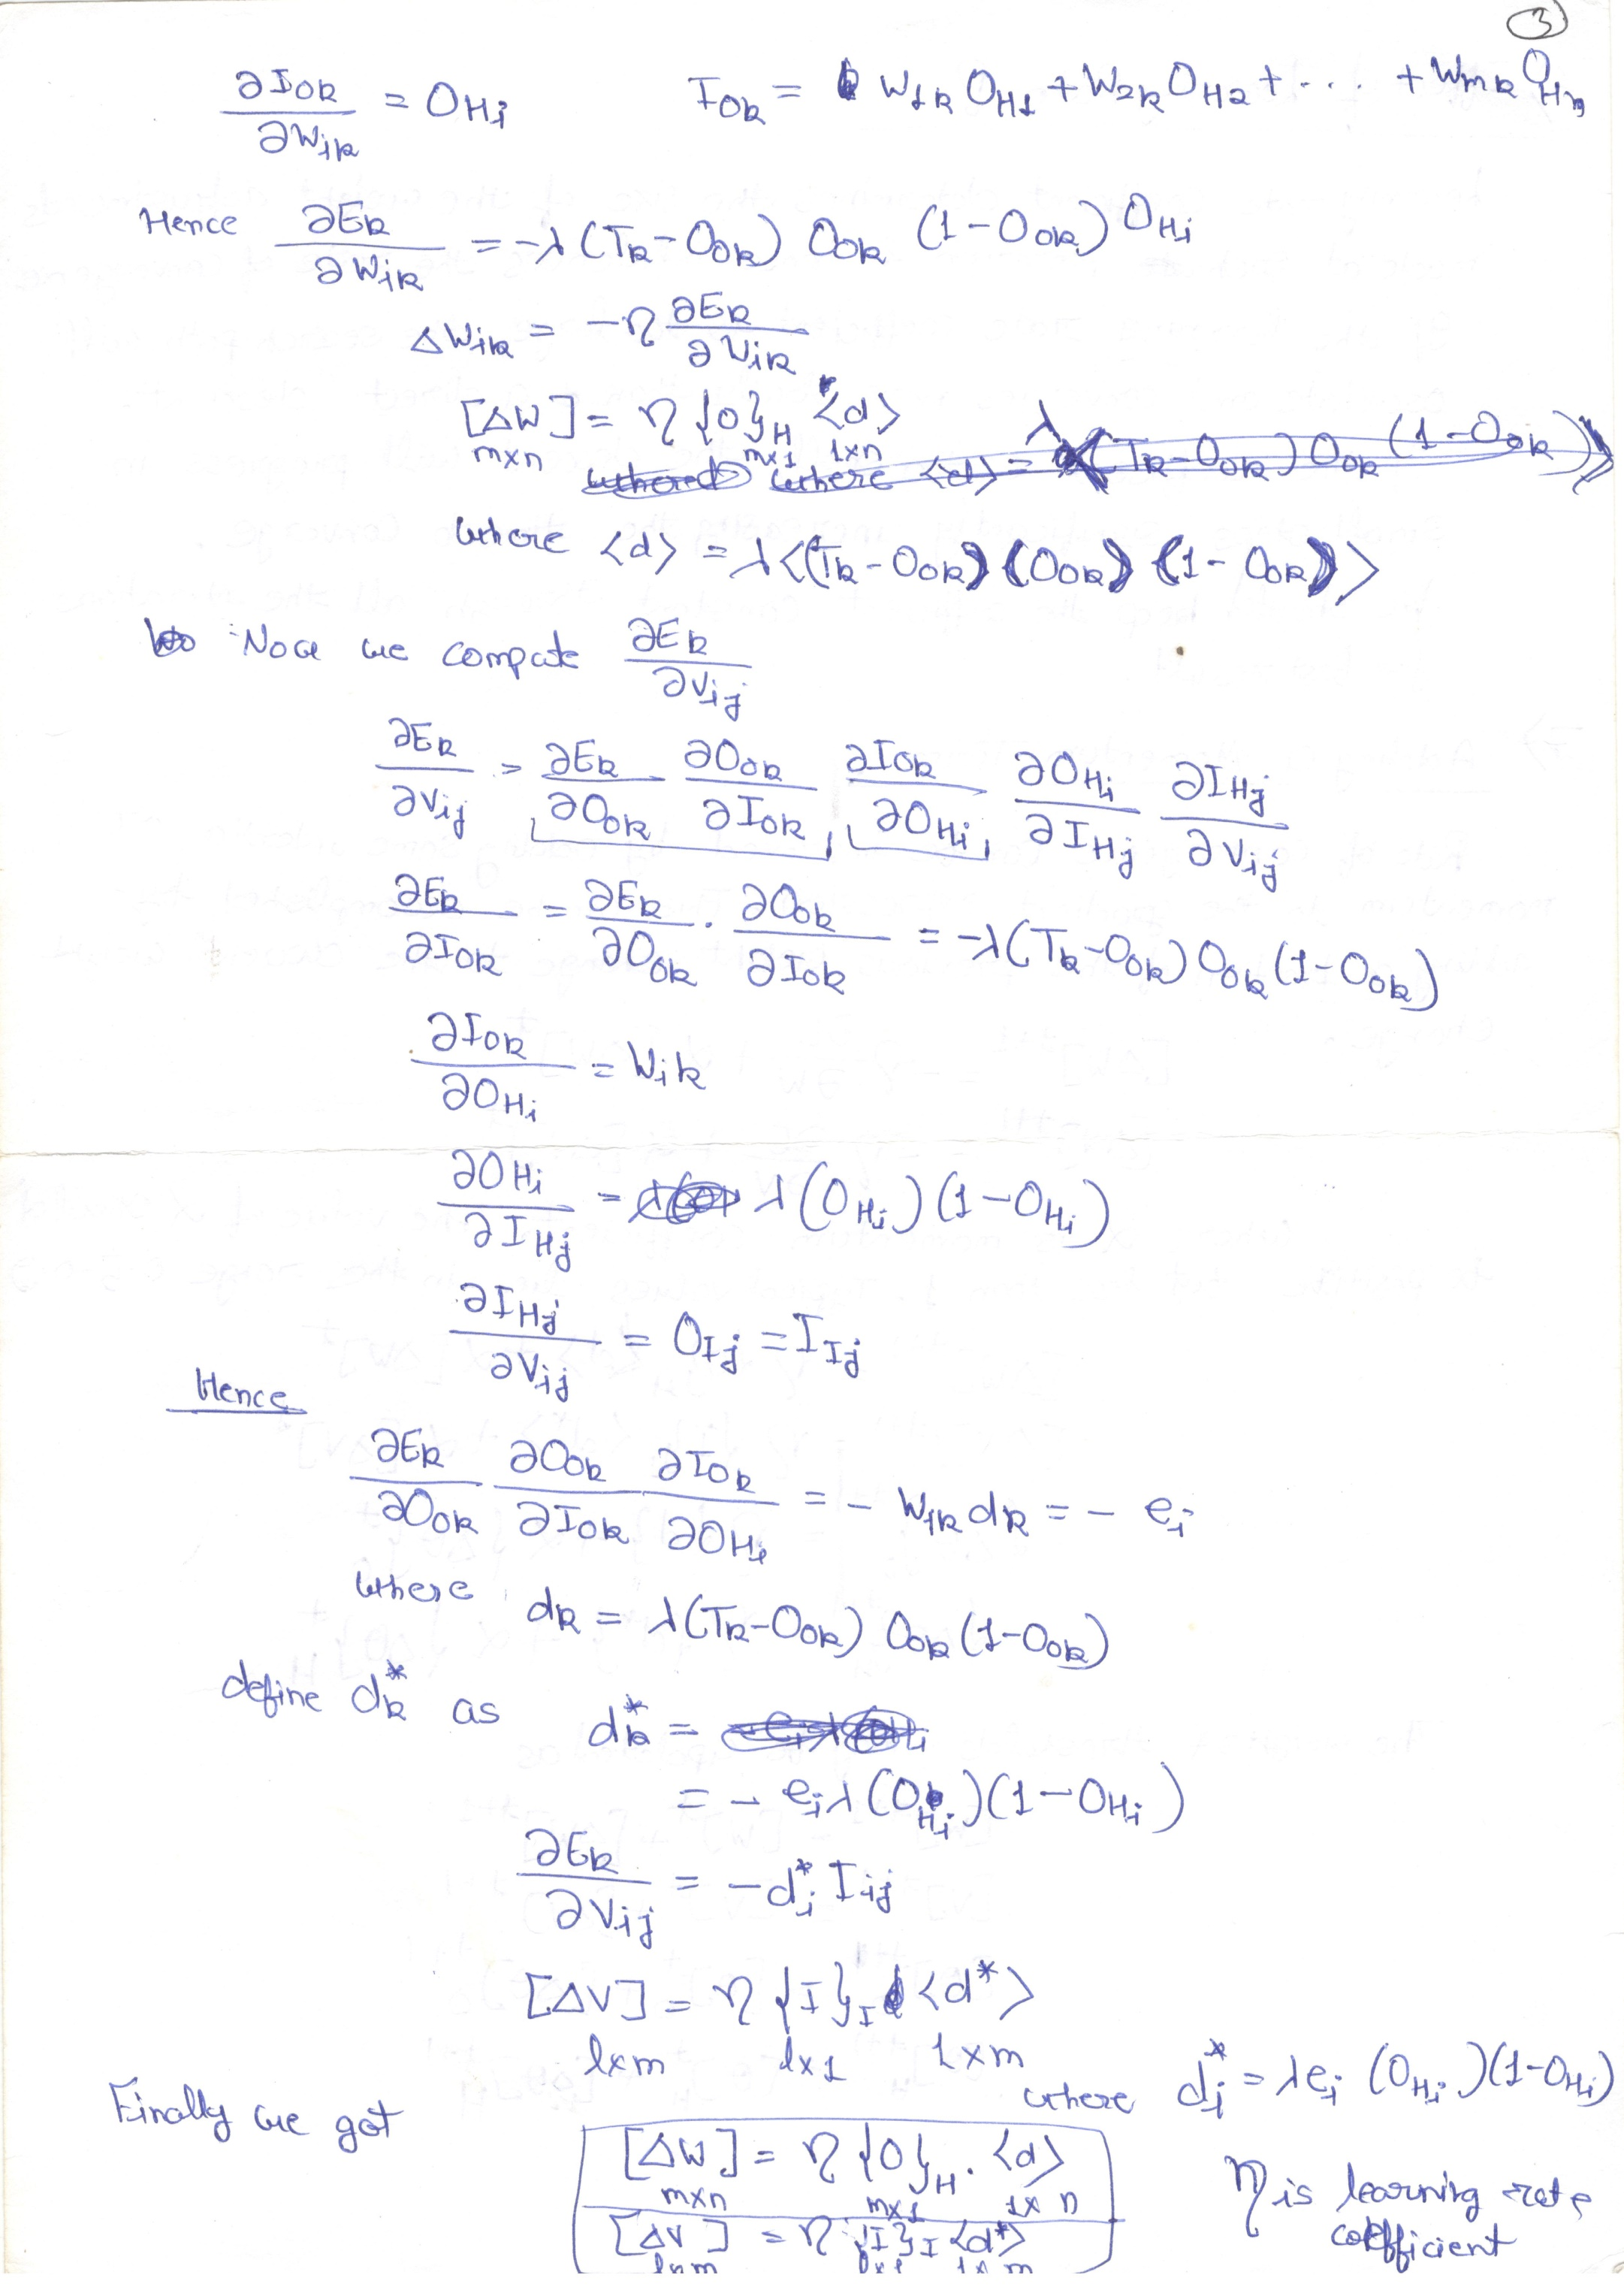 3
∂I_OK / ∂W_ik = O_Hi    I_OK = W_1K O_H1 + W_2K O_H2 + ... + W_mK O_Hm
Hence ∂E_K / ∂W_iK = -λ (T_K - O_OK) O_OK (1 - O_OK) O_Hi
ΔW_iK = -η ∂E_K / ∂V_iK
[ΔW] = η {O}_H <d>
m×n m×1 1×n
where <d> = λ (T_K - O_OK) O_OK (1 - O_OK)
where <d> = λ <(T_K - O_OK) (O_OK) (1 - O_OK)>
Now we compute ∂E_K / ∂V_ij
∂E_K / ∂V_ij = ∂E_K / ∂O_OK ∂O_OK / ∂I_OK ∂I_OK / ∂O_Hi ∂O_Hi / ∂I_Hj ∂I_Hj / ∂V_ij
∂E_K / ∂I_OK = ∂E_K / ∂O_OK . ∂O_OK / ∂I_OK = -λ (T_K - O_OK) O_OK (1 - O_OK)
∂I_OK / ∂O_Hi = W_ik
∂O_Hi / ∂I_Hj = λ (O_Hi) (1 - O_Hi)
∂I_Hj / ∂V_ij = O_Ij = I_Ij
Hence
∂E_K / ∂O_OK ∂O_OK / ∂I_OK ∂I_OK / ∂O_Hi = - W_iK d_K = - e_i
where d_K = λ (T_K - O_OK) O_OK (1 - O_OK)
define d*_K as d*_K =
= - e_i λ (O_Hi) (1 - O_Hi)
∂E_K / ∂V_ij = -d*_i I_ij
[ΔV] = η {I}_I <d*>
l×m l×1 1×m
where d*_i = λ e_i (O_Hi) (1 - O_Hi)
Finally we got
[ΔW] = η {O}_H . <d>
m×n m×1 1×n
[ΔV] = η {I}_I <d*>
l×m l×1 1×m
η is learning rate
coefficient